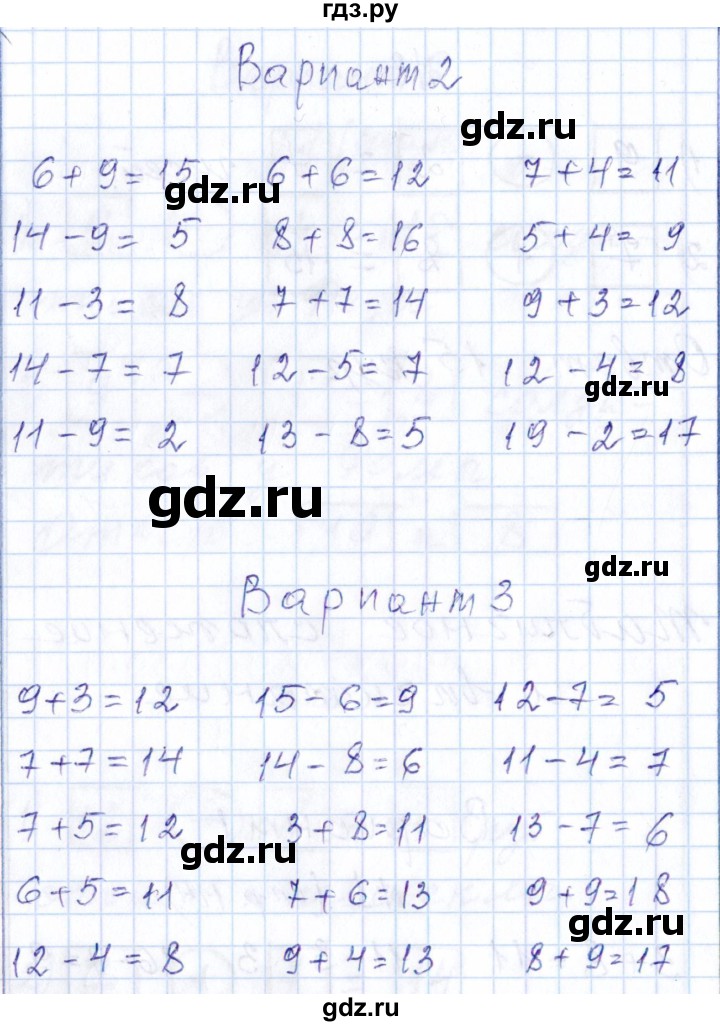 гдз.ру
Вариант 2
gdz.ru
6 + 9 = 15 6 + 6 = 12 7 + 4 = 11
gdz.ru
14 - 9 = 5 8 + 8 = 16 5 + 4 = 9
11 - 3 = 8 7 + 7 = 14 9 + 3 = 12
14 - 7 = 7 12 - 5 = 7 12 - 4 = 8
gdz.ru
11 - 9 = 2 13 - 8 = 5 19 - 2 = 17
gdz.ru
gdz.ru
Вариант 3
9 + 3 = 12 15 - 6 = 9 12 - 7 = 5
7 + 7 = 14 14 - 8 = 6 11 - 4 = 7
7 + 5 = 12 3 + 8 = 11 13 - 7 = 6
gdz.ru
6 + 5 = 11 7 + 6 = 13 9 + 9 = 18
gdz.ru
12 - 4 = 8 9 + 4 = 13 8 + 9 = 17
gdz.ru